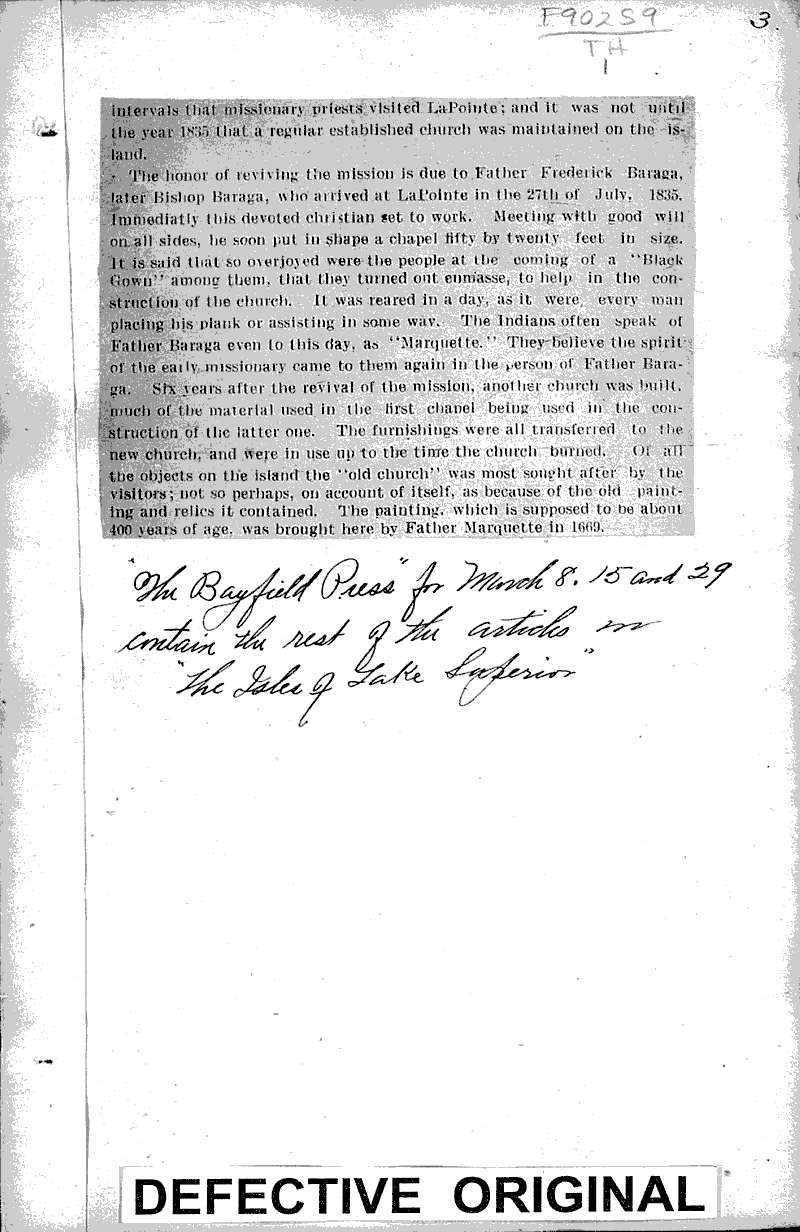 F902S9
TH
1
3.
intervals that missionary priests visited LaPointe; and it was not until
the year 1835 that a regular established church was maintained on the is-
land.
The honor of reviving the mission is due to Father Frederick Baraga,
later Bishop Baraga, who arrived at LaPointe in the 27th of July, 1835.
Immediatly this devoted christian set to work. Meeting with good will
on all sides, he soon put in shape a chapel fifty by twenty feet in size.
It is said that so overjoyed were the people at the coming of a "Black
Gown" among them, that they turned out enmasse, to help in the con-
struction of the church. It was reared in a day, as it were, every man
placing his plank or assisting in some way. The Indians often speak of
Father Baraga even to this day, as "Marquette." They believe the spirit
of the early missionary came to them again in the person of Father Bara-
ga. Six years after the revival of the mission, another church was built,
much of the material used in the first chapel being used in the con-
struction of the latter one. The furnishings were all transferred to the
new church, and were in use up to the time the church burned. Of all
the objects on the island the "old church" was most sought after by the
visitors; not so perhaps, on account of itself, as because of the old paint-
ing and relics it contained. The painting, which is supposed to be about
400 years of age, was brought here by Father Marquette in 1669.
"The Bayfield Press" for March 8. 15 and 29
contain the rest of the articles on
"The Isles of Lake Superior"
DEFECTIVE ORIGINAL